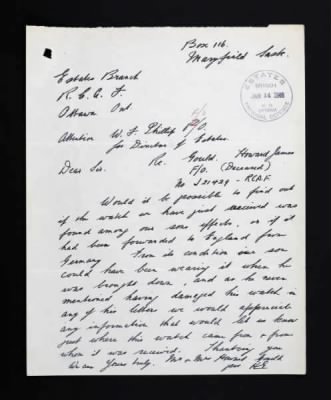 Box 116.
Maryfield Sask.
Estates Branch
R.C.A.F.
Ottawa Ont
ESTATES
BRANCH
F/O
Attention W. J. Phillip P/O.
for Director of Estates.
Dear Sir. Re. Gould. Howard James
F/O. (Deceased)
No J21439 - RCAF.
Would it be possible to find out
if the watch we have just received was
found among our sons effects, or if it
had been forwarded to England from
Germany From its condition our son
could have been wearing it when he
was brought down, and as he never
mentioned having damaged his watch in
any of his letters we would appreciate
any information that would let us know
just where this watch came from & from
whom it was received. Thanking you
We are Yours truly. Mr & Mrs Howard Gould
per